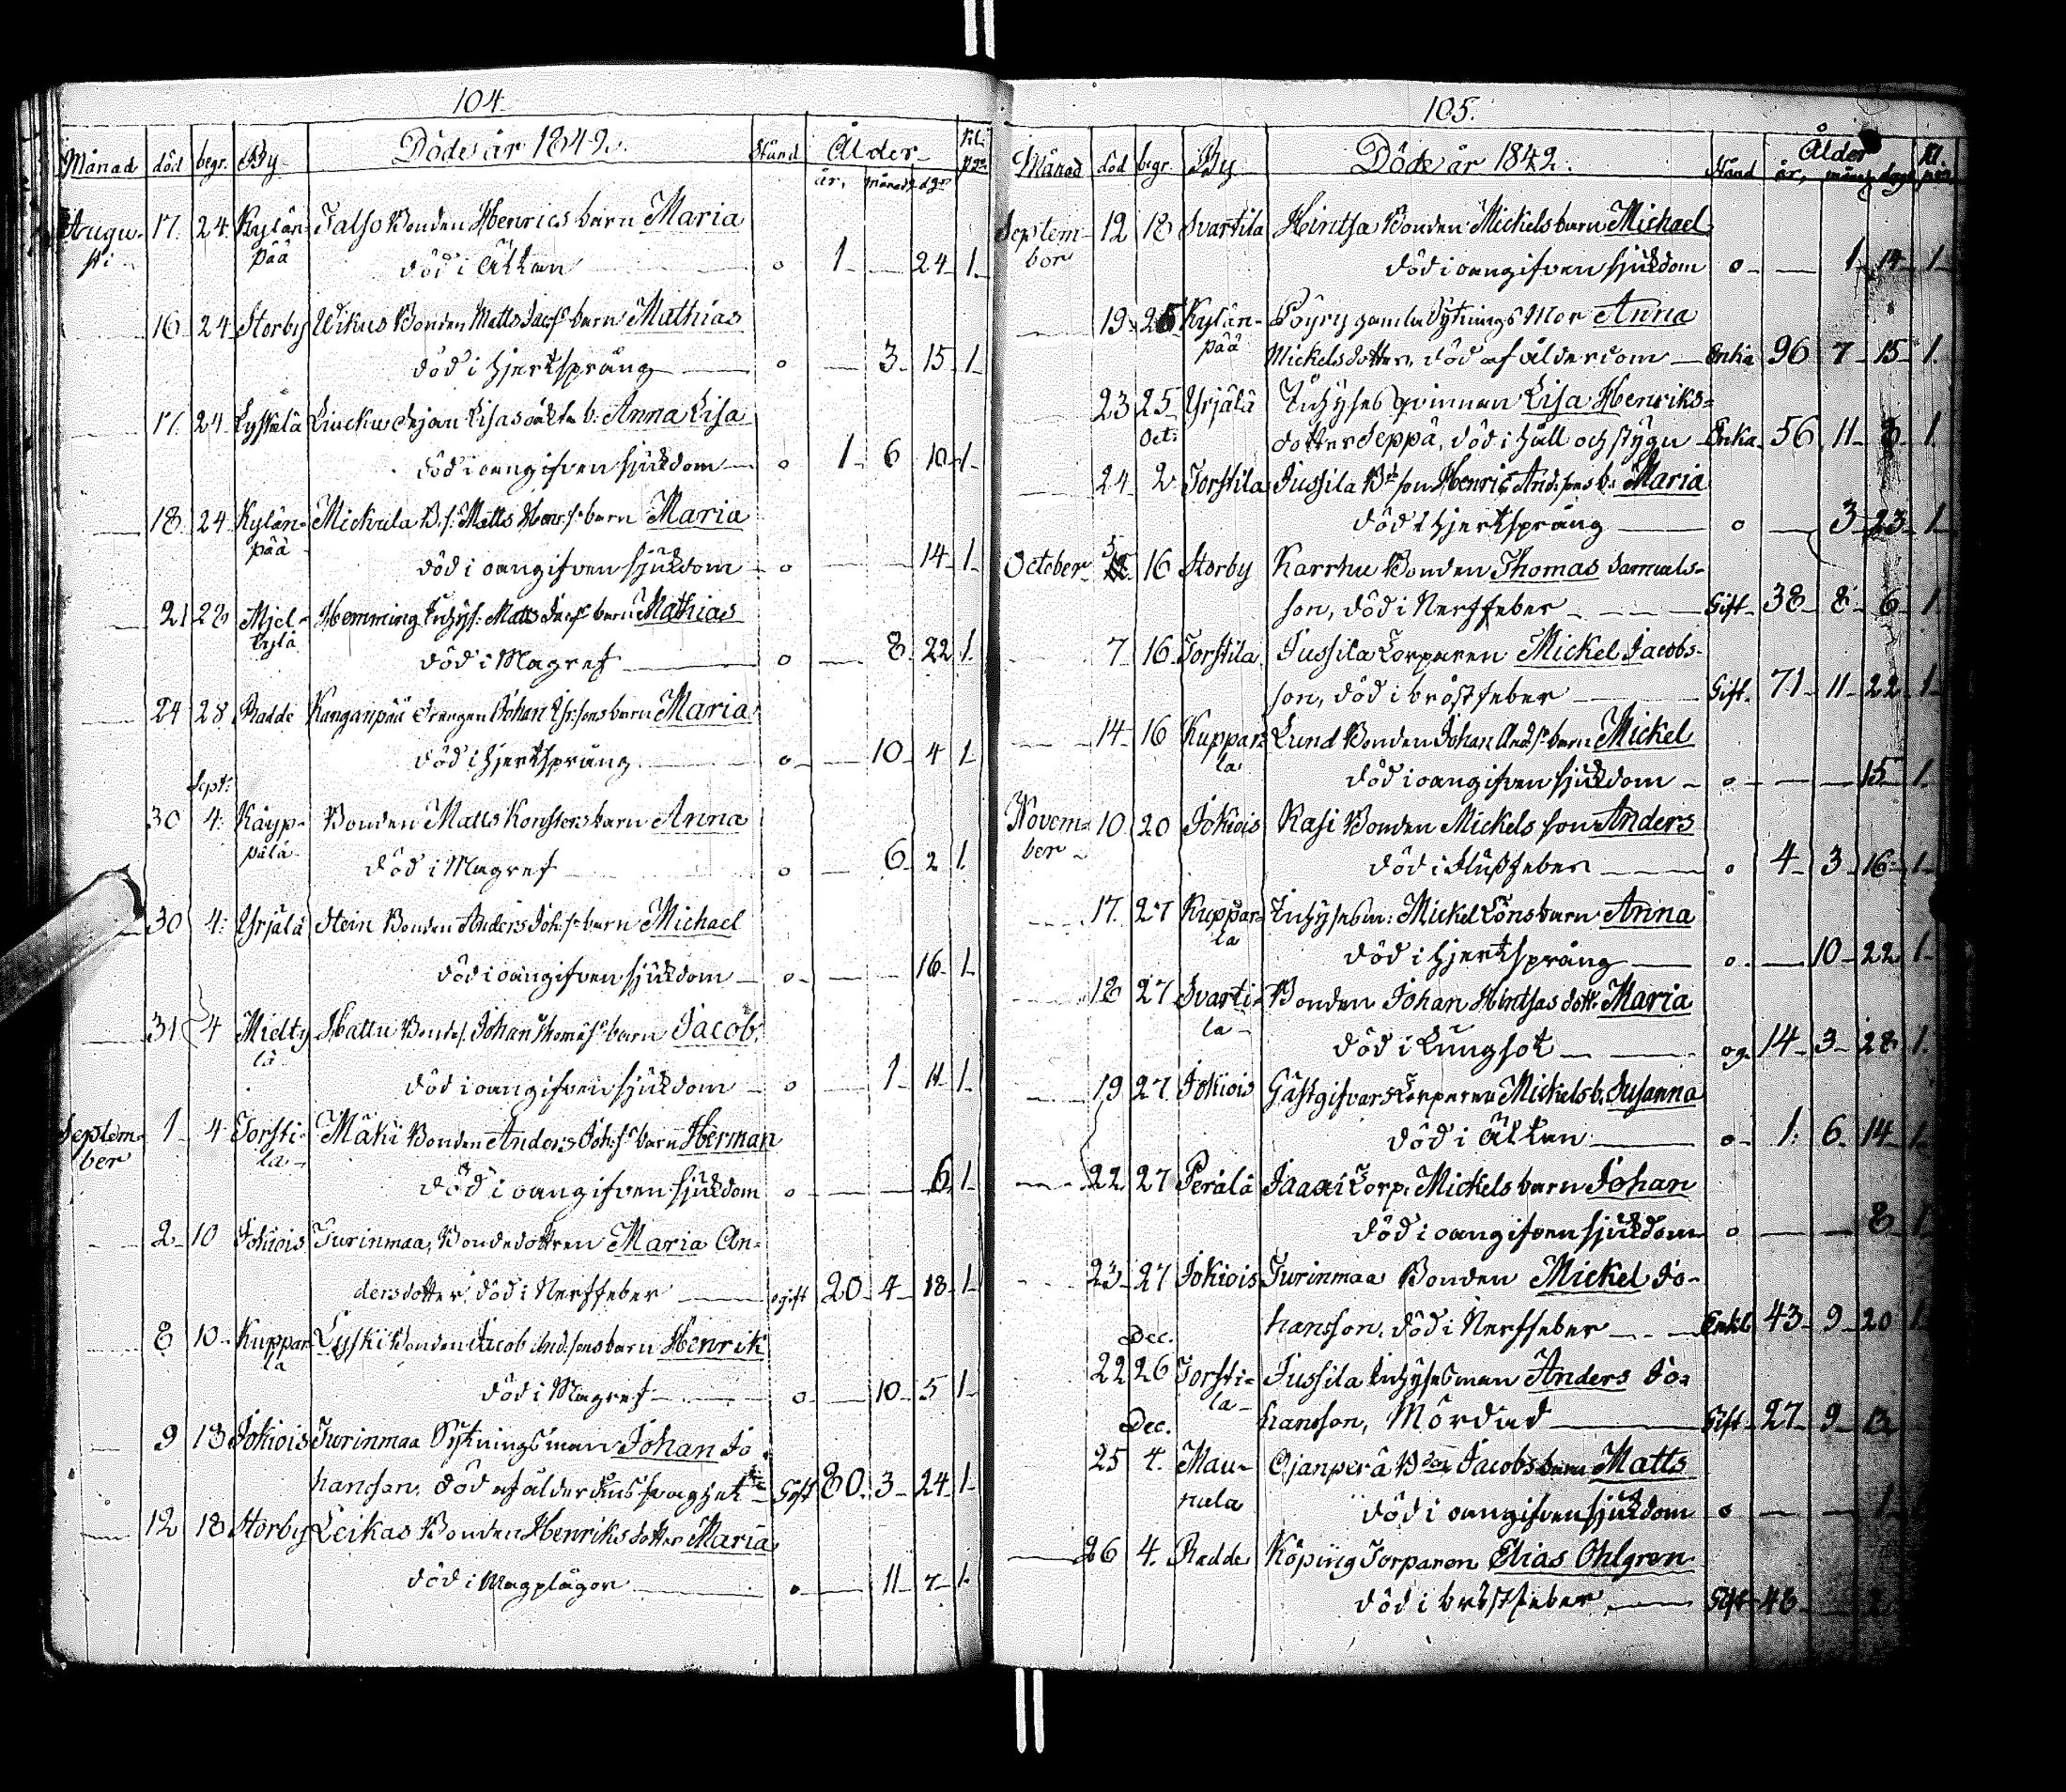 104
Månad död begr. By Döde år 1842. Stånd Ålder
år, månad dgr
Augu- 17. 24. Kylän- Talso Bonden Henrics barn Maria
sti pää död i Ältan o 1 24 1
16 24 Storby Wikus Bonden Matts Jacs barn Mathias
död i hjertsprång o 3 15 1
17. 24 Lyskilä Pigan Lisas oäkta b. Anna Lisa
död i oangifven sjukdom o 1 6 10 1
18. 24 Kylän- Mickula B.s. Matts Henr.s barn Maria
pää död i oangifven sjukdom o 14 1
21 28 Miel- Hemming Inhys. Matts Jacs barn Mathias
tylä död i Magref o 8 22 1
24 28 Radde Kanganpää Drengen Johan barn Maria
död i hjertsprång o 10 4 1
Sept:
30 4: Käyp- Bonden Matts Konsters barn Anna
pälä död i Magref o 6 2 1
30 4: Yrjälä Stein Bonden Anders Joh.s barn Michael
död i oangifven sjukdom o 16 1
31 4 Mielty Hattu Bondes. Johan Thomæs barn Jacob
lä död i oangifven sjukdom o 1 11 1
Septem- 1 4 Torsti- Mäki Bonden Anders Joh:s barn Herman
ber la död i oangifven sjukdom o 6 1
2 10 Jokiois Turinmaa, Bondedottren Maria An-
dersdotter, död i Nerffeber ogift 20 4 18 1
8 10 Kuppar- Lyski Bonden Jacob And.sons barn Henrik
la död i Magref o 10 5 1
9 13 Jokiois Turinmaa Sytningsman Johan Jo
hanson, död af ålderdoms svaghet Gift 80. 3 24 1
12 18 Storby Leikas Bonden Henriks dotter Maria
död i Magplågor o 11 7 1
105.
Månad död begr. By Döde år 1842. Stånd Ålder
år,
Septem- 12 18 Svartila Hintsa Bonden Mickels barn Michael
ber död i oangifven sjukdom o 1 14 1
19 25 Kylän- Pöyry gamla Sytnings Mor Anna
pää Mickelsdotter, död af ålderdom Enka 96 7 15 1.
23 25 Yrjälä Inhyses qvinnan Lisa Henriks-
Oct: dotter Seppä, död i håll och stygn Enka 56 11 1.
24 2 Torstila Jussila Bd son Henric And.sons b. Maria
död i hjertsprång o 3 23 1
October 5 16 Storby Karrhu Bonden Thomas Samuels-
son, död i Nerffeber Gift 38 8 6 1
7 16 Torstila Jussila Torparen Mickel Jacobs-
son, död i bröstfeber Gift. 71 11 22 1
14 16 Kuppar- Lund Bonden Johan And.s barn Mickel
la död i oangifven sjukdom o 15 1.
Novem- 10 20 Jokiois Kasi Bonden Mickels son Anders
ber död i flussfeber o 4 3 16 1
17. 27 Kuppar- Inhysesm: Mickel Löns barn Anna
la död i hjertsprång o 10 22 1
18 27 Svarti- Bonden Johan Hintsas dott. Maria
la död i Lungsot og. 14 3 28 1.
19 27 Jokiois Gästgifvars Torparen Mickels b. Susanna
död i Ältan o 1. 6 14 1
22 27 Perälä Torp. Mickels barn Johan
död i oangifven sjukdom o 8 1
23 27 Jokiois Turinmaa Bonden Mickel Jo-
hansson, död i Nerffeber Enkl 43 9 20 1
Dec.
22 26 Torsti- Jussila Inhysesman Anders Jo-
la hansson, Mördad Gift 27 9 13
Dec.
25 4. Mau- Ojanperä Jacobs barn Matts
nula död i oangifven sjukdom o 1
26 4. Radde Köping Torparen Elias Ohlgren
död i bröstfeber Gift 48